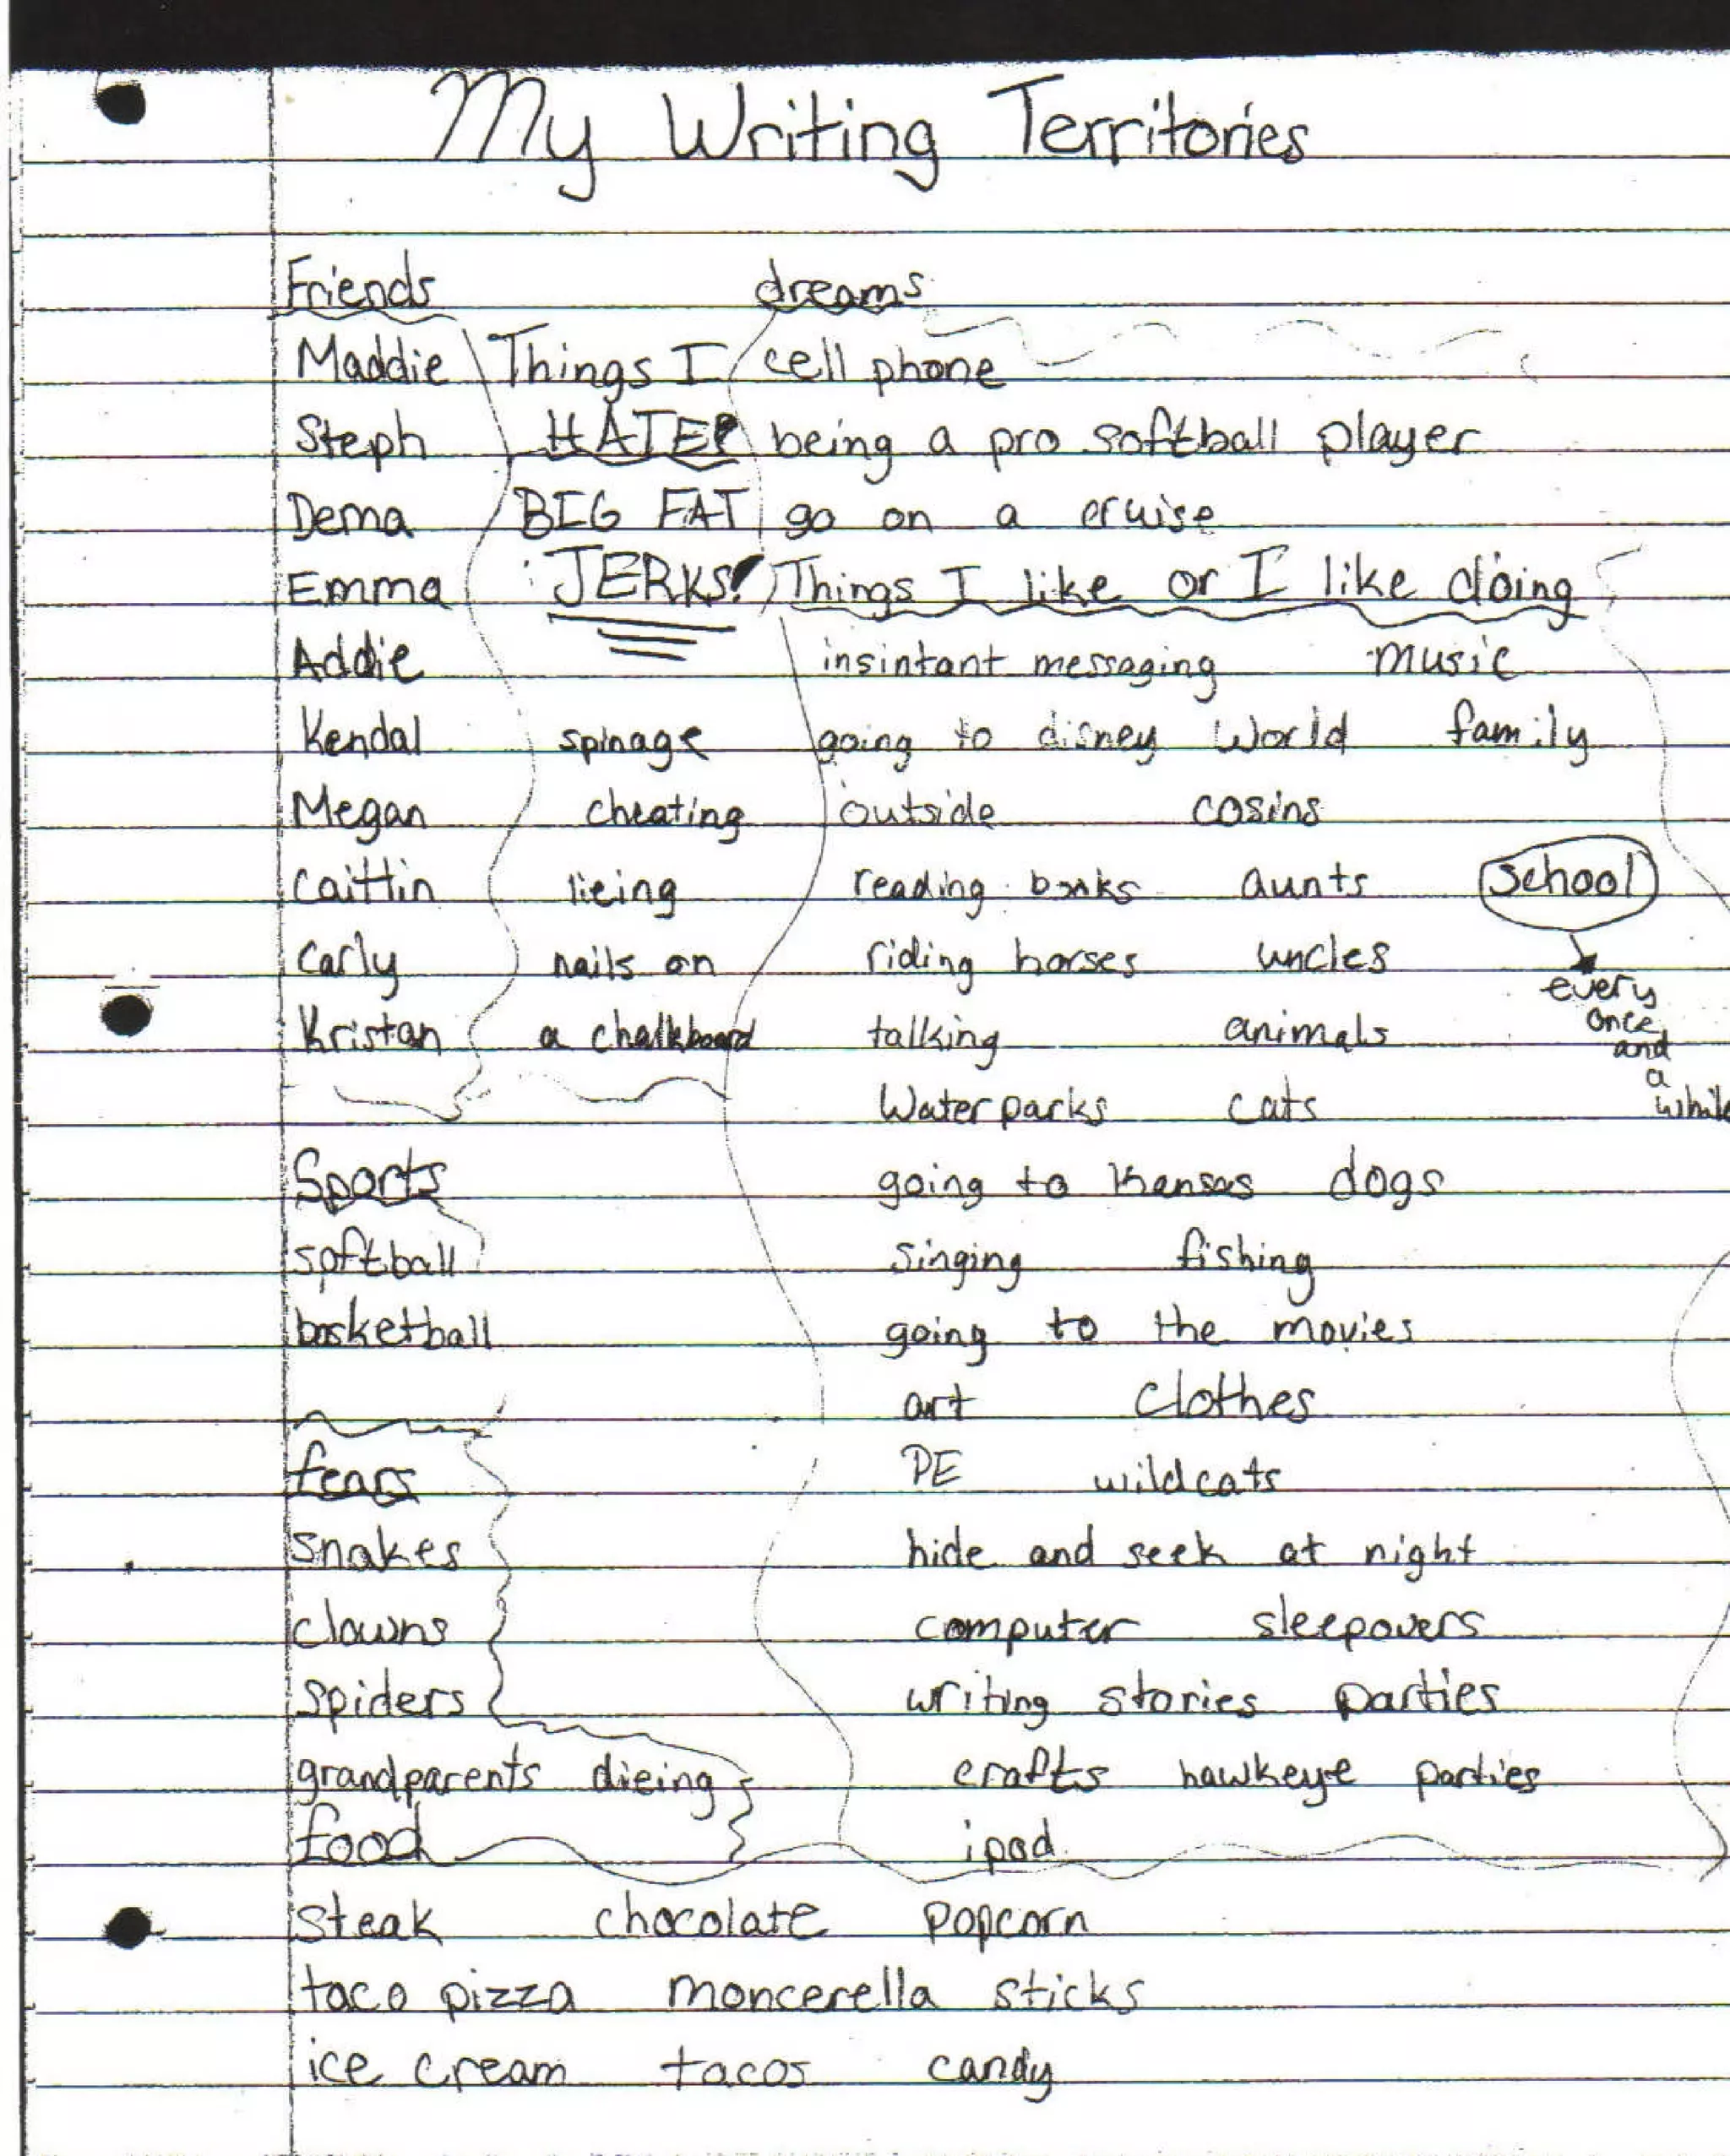 My Writing Territories
Friends
Maddie
Steph
Dema
Emma
Addie
Kendal
Megan
Caitlin
Carly
Kristan
Things I
HATE!
BIG FAT
JERKS!
spinage
cheating
lieing
nails on
a chalkboard
dreams
cell phone
being a pro softball player
go on a cruise
Things I like or I like doing
insintant messaging music
going to disney World family
outside cosins
reading books aunts
riding horses uncles
talking animals
Waterparks cats
going to Kansas dogs
singing fishing
going to the movies
art clothes
PE wildcats
hide and seek at night
computer sleepovers
writing stories parties
crafts hawkeye parties
ipod
school
every
once
and
a
while
Sports
softball
basketball
fears
snakes
clowns
spiders
grandparents dieing
food
steak chocolate popcorn
taco pizza moncerella sticks
ice cream tacos candy